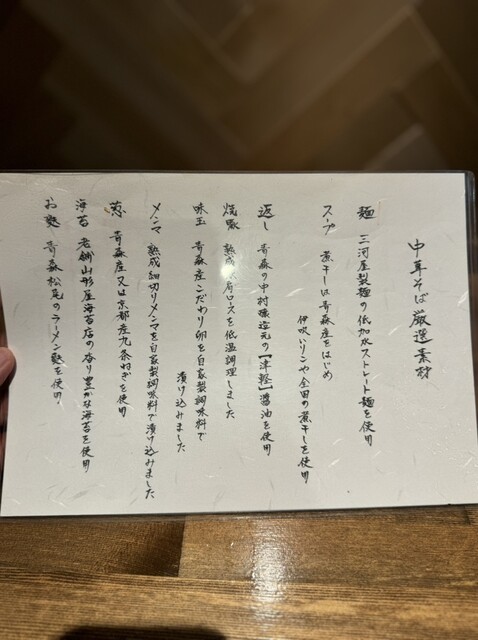 中華そば厳選素材
麺 三河屋製麺の低加水ストレート麺を使用
スープ 煮干しは青森産をはじめ
伊吹いりこや全国の煮干しを使用
返し 青森の中村醸造元の【津軽】醤油を使用
焼豚 熟成肩ロースを低温調理しました
味玉 青森産こだわり卵を自家製調味料で
漬け込みました
メンマ 熟成細切りメンマを自家製調味料で漬け込みました
葱 青森産又は京都産九条ねぎを使用
海苔 老舗山形屋海苔店の香り豊かな海苔を使用
お麩 青森松尾のラーメン麩を使用